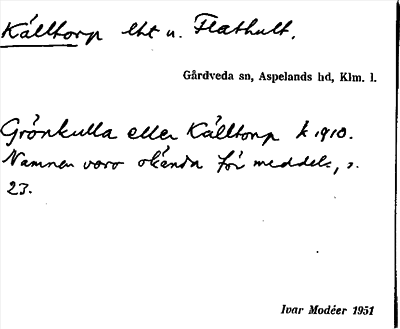 Källtorp lht u. Flathult.
Gårdveda sn, Aspelands hd, Klm. l.
Grönkulla eller Källtorp k. 1910.
Namnen voro okända för meddel., s.
23.
Ivar Modéer 1951